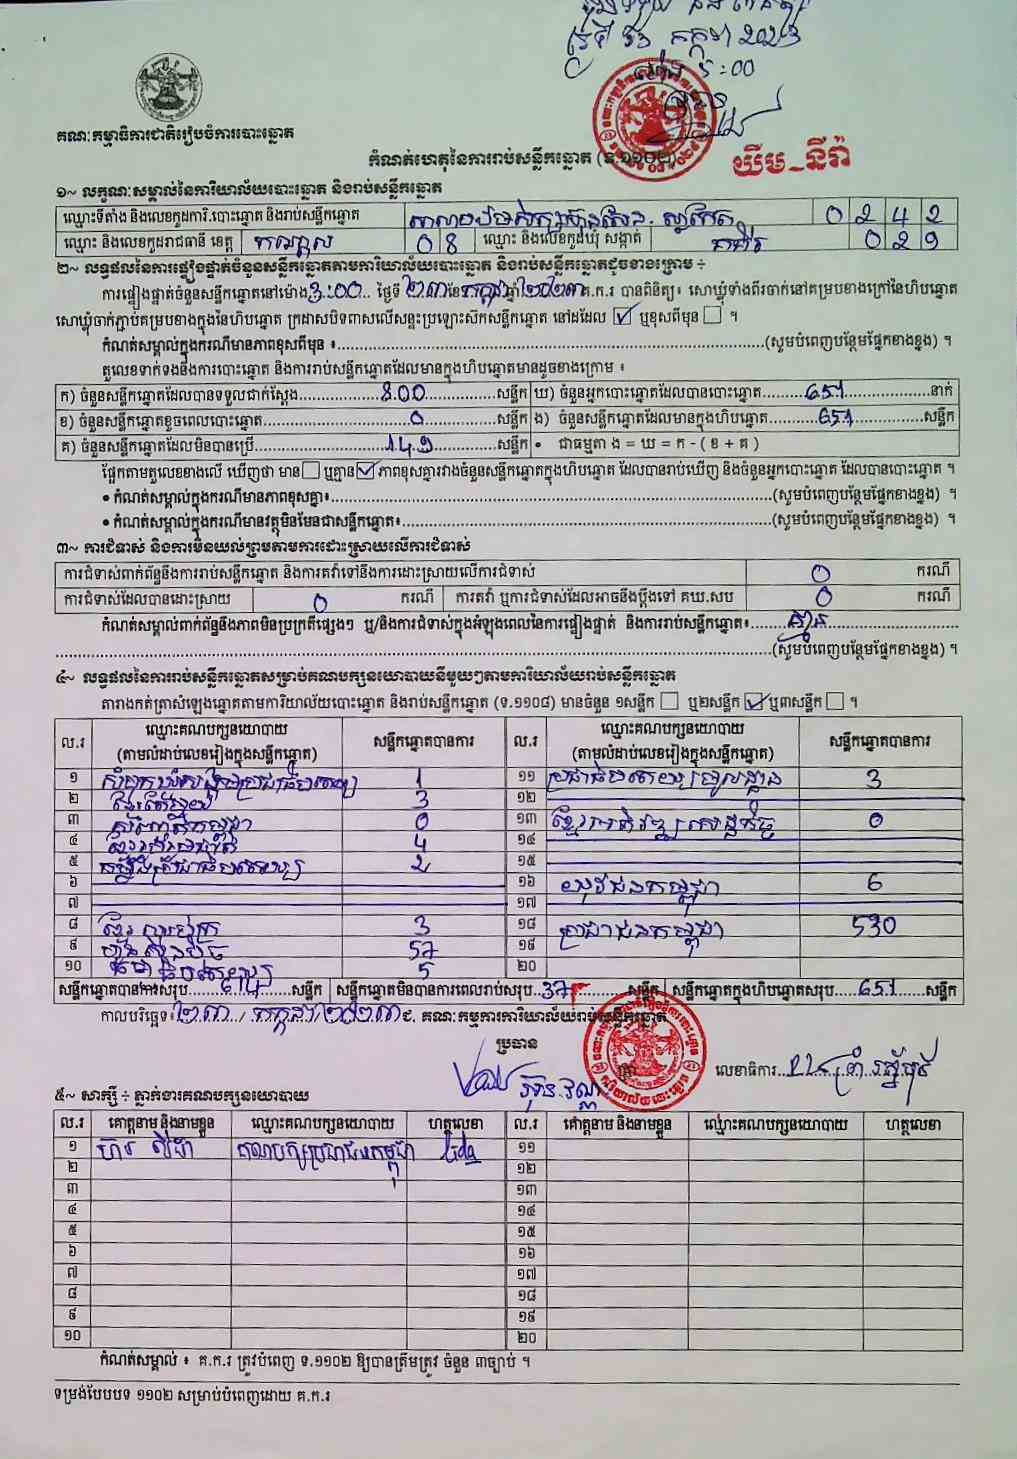 ម៉ោង ៖ 5:00
គណៈកម្មាធិការជាតិរៀបចំការបោះឆ្នោត
កំណត់ហេតុនៃការរាប់សន្លឹកឆ្នោត (ទ.១១០២)
យឹម_នីរ៉ា
១~ លក្ខណៈសម្គាល់នៃការិយាល័យបោះឆ្នោត និងរាប់សន្លឹកឆ្នោត
ឈ្មោះទីតាំង និងលេខកូដការិ.បោះឆ្នោត និងរាប់សន្លឹកឆ្នោត 0 2 4 2
ឈ្មោះ និងលេខកូដរាជធានី ខេត្ត កណ្តាល 0 8 ឈ្មោះ និងលេខកូដឃុំ សង្កាត់ 0 2 9
២~ លទ្ធផលនៃការផ្ទៀងផ្ទាត់ចំនួនសន្លឹកឆ្នោតតាមការិយាល័យបោះឆ្នោត និងរាប់សន្លឹកឆ្នោតដូចខាងក្រោម ÷
ការផ្ទៀងផ្ទាត់ចំនួនសន្លឹកឆ្នោតនៅម៉ោង 3:00 ថ្ងៃទី ២៣ ខែ កក្កដា ឆ្នាំ ២០២៣ គ.ក.រ បានពិនិត្យ៖ សោឃ្លុំទាំងពីរចាក់នៅគម្របខាងក្រៅនៃហិបឆ្នោត
សោឃ្លុំចាក់ភ្ជាប់គម្របខាងក្នុងនៃហិបឆ្នោត ក្រដាសបិទពាសលើសន្ទះប្រឡោះស៊កសន្លឹកឆ្នោត នៅដដែល ☑ ឬខុសពីមុន ☐ ។
កំណត់សម្គាល់ក្នុងករណីមានភាពខុសពីមុន ៖ (សូមបំពេញបន្ថែមផ្នែកខាងខ្នង) ។
តួលេខទាក់ទងនឹងការបោះឆ្នោត និងការរាប់សន្លឹកឆ្នោតដែលមានក្នុងហិបឆ្នោតមានដូចខាងក្រោម ៖
ក) ចំនួនសន្លឹកឆ្នោតដែលបានទទួលជាក់ស្តែង 800 សន្លឹក ឃ) ចំនួនអ្នកបោះឆ្នោតដែលបានបោះឆ្នោត 651 នាក់
ខ) ចំនួនសន្លឹកឆ្នោតខូចពេលបោះឆ្នោត 0 សន្លឹក ង) ចំនួនសន្លឹកឆ្នោតដែលមានក្នុងហិបឆ្នោត 651 សន្លឹក
គ) ចំនួនសន្លឹកឆ្នោតដែលមិនបានប្រើ 149 សន្លឹក • ជាធម្មតា ង = ឃ = ក - ( ខ + គ )
ផ្អែកតាមតួលេខខាងលើ ឃើញថា មាន ☐ ឬគ្មាន ☑ ភាពខុសគ្នារវាងចំនួនសន្លឹកឆ្នោតក្នុងហិបឆ្នោត ដែលបានរាប់ឃើញ និងចំនួនអ្នកបោះឆ្នោត ដែលបានបោះឆ្នោត ។
• កំណត់សម្គាល់ក្នុងករណីមានភាពខុសគ្នា៖ (សូមបំពេញបន្ថែមផ្នែកខាងខ្នង) ។
• កំណត់សម្គាល់ក្នុងករណីមានវត្ថុមិនមែនជាសន្លឹកឆ្នោត៖ (សូមបំពេញបន្ថែមផ្នែកខាងខ្នង) ។
៣~ ការជំទាស់ និងការមិនយល់ព្រមតាមការដោះស្រាយលើការជំទាស់
ការជំទាស់ពាក់ព័ន្ធនឹងការរាប់សន្លឹកឆ្នោត និងការតវ៉ាទៅនឹងការដោះស្រាយលើការជំទាស់ 0 ករណី
ការជំទាស់ដែលបានដោះស្រាយ 0 ករណី ការតវ៉ា ឬការជំទាស់ដែលអាចនឹងប្តឹងទៅ គឃ.សប 0 ករណី
កំណត់សម្គាល់ពាក់ព័ន្ធនឹងភាពមិនប្រក្រតីផ្សេងៗ ឬ/និងការជំទាស់ក្នុងអំឡុងពេលនៃការផ្ទៀងផ្ទាត់ និងការរាប់សន្លឹកឆ្នោត៖ គ្មាន
(សូមបំពេញបន្ថែមផ្នែកខាងខ្នង) ។
៤~ លទ្ធផលនៃការរាប់សន្លឹកឆ្នោតសម្រាប់គណបក្សនយោបាយនីមួយៗតាមការិយាល័យរាប់សន្លឹកឆ្នោត
តារាងកត់ត្រាសំឡេងឆ្នោតតាមការិយាល័យបោះឆ្នោត និងរាប់សន្លឹកឆ្នោត (ទ.១១០៨) មានចំនួន ១សន្លឹក ☐ ឬ២សន្លឹក ☑ ឬ៣សន្លឹក ☐ ។
ល.រ ឈ្មោះគណបក្សនយោបាយ (តាមលំដាប់លេខរៀងក្នុងសន្លឹកឆ្នោត) សន្លឹកឆ្នោតបានការ ល.រ ឈ្មោះគណបក្សនយោបាយ (តាមលំដាប់លេខរៀងក្នុងសន្លឹកឆ្នោត) សន្លឹកឆ្នោតបានការ
១ 1 ១១ ប្រជាធិបតេយ្យមូលដ្ឋាន 3
២ 3 ១២
៣ 0 ១៣ ខ្មែរអភិវឌ្ឍសេដ្ឋកិច្ច 0
៤ 4 ១៤
៥ កម្លាំងប្រជាធិបតេយ្យ 2 ១៥
៦ ១៦ យុវជនកម្ពុជា 6
៧ ១៧
៨ ខ្មែរ 3 ១៨ ប្រជាជនកម្ពុជា 530
៩ ហ្វ៊ុនស៊ិនប៉ិច 57 ១៩
១០ 5 ២០
សន្លឹកឆ្នោតបានការសរុប 614 សន្លឹក សន្លឹកឆ្នោតមិនបានការពេលរាប់សរុប 37 សន្លឹក សន្លឹកឆ្នោតក្នុងហិបឆ្នោតសរុប 651 សន្លឹក
កាលបរិច្ឆេទ៖ ២៣ / កក្កដា / ២០២៣ ៨. គណៈកម្មការការិយាល័យរាប់សន្លឹកឆ្នោត
ប្រធាន
លេខាធិការ
៥~ សាក្សី ÷ ភ្នាក់ងារគណបក្សនយោបាយ
ល.រ គោត្តនាម និងនាមខ្លួន ឈ្មោះគណបក្សនយោបាយ ហត្ថលេខា ល.រ គោត្តនាម និងនាមខ្លួន ឈ្មោះគណបក្សនយោបាយ ហត្ថលេខា
១ ហ៊រ លីដា គណបក្សប្រជាជនកម្ពុជា lida ១១
២ ១២
៣ ១៣
៤ ១៤
៥ ១៥
៦ ១៦
៧ ១៧
៨ ១៨
៩ ១៩
១០ ២០
កំណត់សម្គាល់ ៖ គ.ក.រ ត្រូវបំពេញ ទ.១១០២ ឱ្យបានត្រឹមត្រូវ ចំនួន ៣ច្បាប់ ។
ទម្រង់បែបបទ ១១០២ សម្រាប់បំពេញដោយ គ.ក.រ